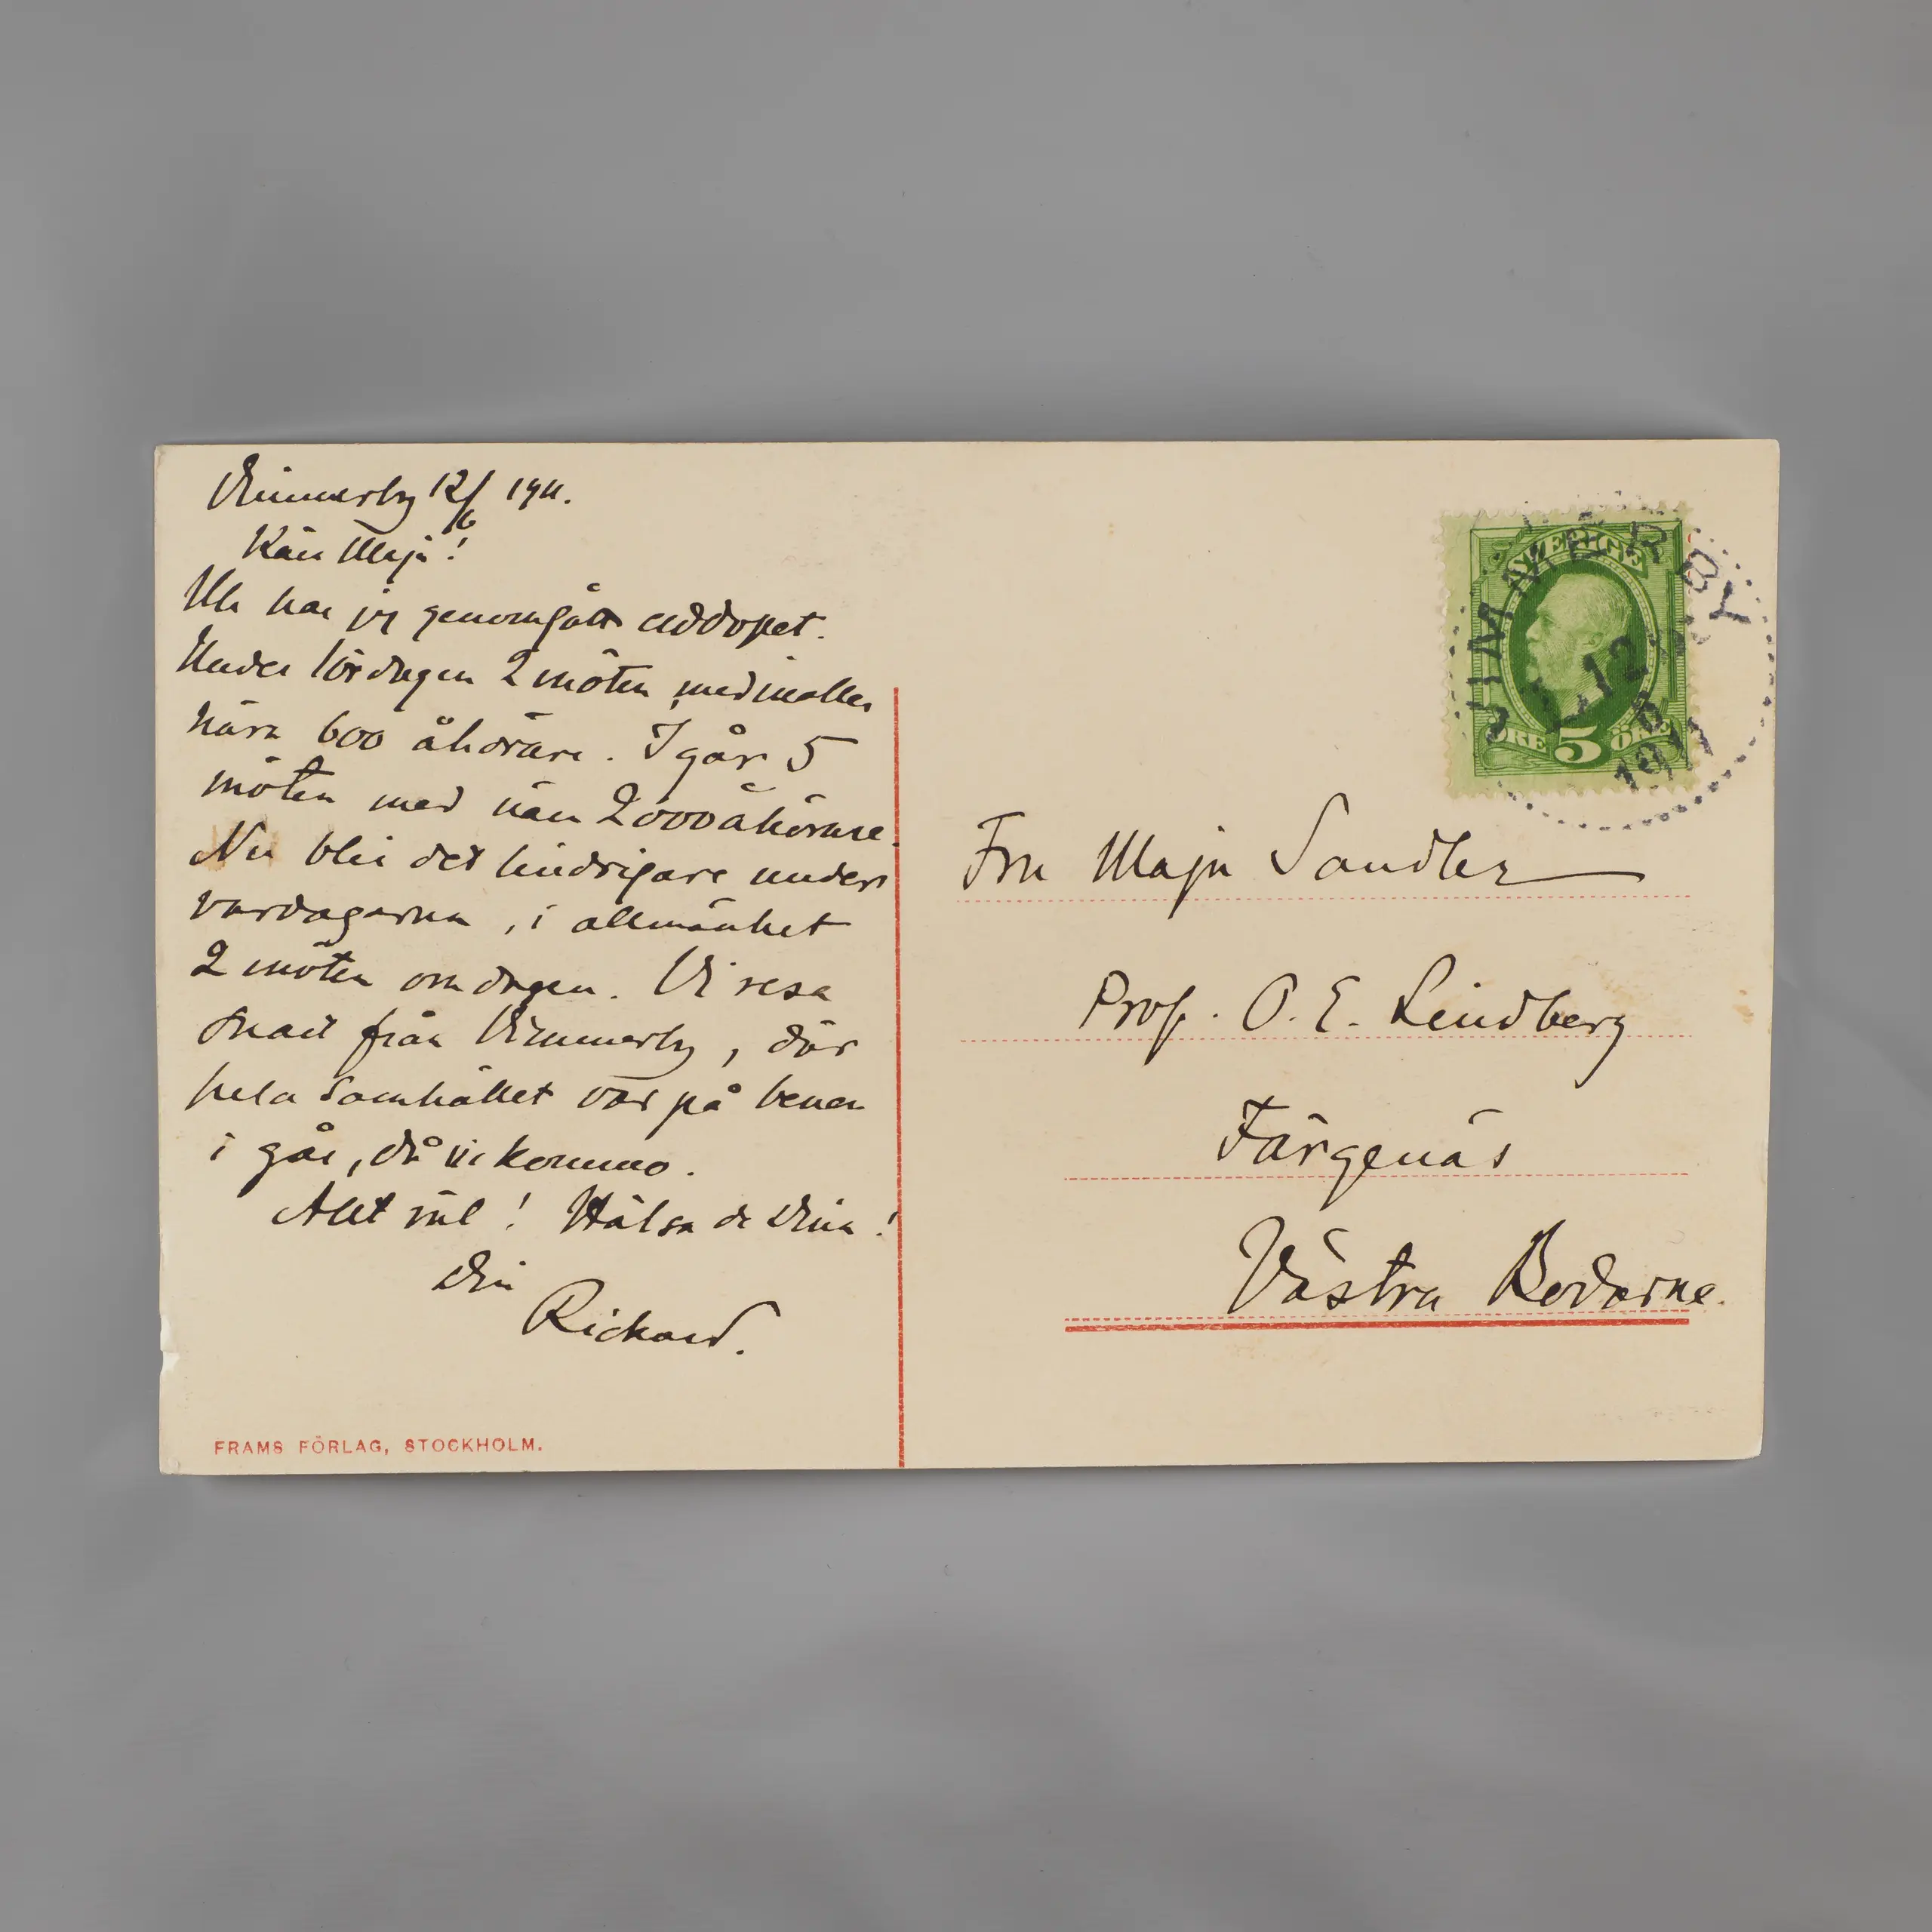 Vimmerby 12/6 1911.
Kära Maja!
Nu har jag genomgått elddopet.
Under lördagen 2 möten med inalles
nära 600 åhörare. I går 5
möten med nära 2000 åhörare.
Nu blir det lindrigare under
vardagarna, i allmänhet
2 möten om dagen. Vi resa
snart från Vimmerby, där
hela samhället var på benen
i går, då vi kommo.
Allt väl! Hälsa de Dina!
Din
Rickard.
FRAMS FÖRLAG, STOCKHOLM.
SVERIGE
ÖRE 5 ÖRE
VIMMERBY
12
6
1911
Fru Maja Sandler
Prof. O. E. Lindberg
Färgenäs
Västra Bodarne.